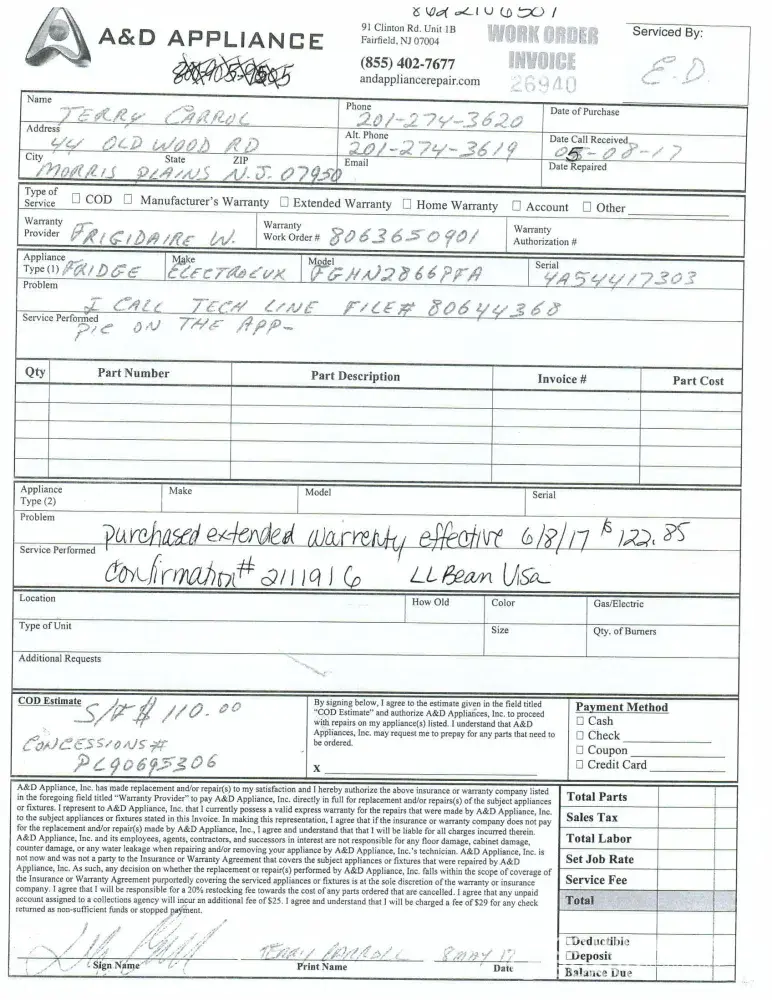 A&D APPLIANCE
91 Clinton Rd. Unit 1B
Fairfield, NJ 07004
(855) 402-7677
andappliancerepair.com
WORK ORDER
INVOICE
26940
Serviced By:
E.D.
Name TERRY CARROL
Phone 201-274-3620
Date of Purchase
Address 44 OLD WOOD RD
Alt. Phone 201-274-3619
Date Call Received 05-08-17
City State ZIP
MORRIS PLAINS N.J. 07950
Email
Date Repaired
Type of Service ☐ COD ☐ Manufacturer's Warranty ☐ Extended Warranty ☐ Home Warranty ☐ Account ☐ Other
Warranty Provider FRIGIDAIRE W.
Warranty Work Order # 8063650901
Warranty Authorization #
Appliance Type (1) FRIDGE
Make ELECTROLUX
Model FGHN2866PFA
Serial 4A54417303
Problem
I CALL TECH LINE FILE# 80644368
Service Performed
PIC ON THE APP-
Qty Part Number Part Description Invoice # Part Cost
Appliance Type (2) Make Model Serial
Problem
purchased extended warrenty effective 6/8/17 $122.85
Service Performed
Confirmation# 2111916 LLBean Visa
Location How Old Color Gas/Electric
Type of Unit Size Qty. of Burners
Additional Requests
COD Estimate
110.00
CONCESSIONS #
PL90695306
By signing below, I agree to the estimate given in the field titled
"COD Estimate" and authorize A&D Appliances, Inc. to proceed
with repairs on my appliance(s) listed. I understand that A&D
Appliances, Inc. may request me to prepay for any parts that need to
be ordered.
X
Payment Method
☐ Cash
☐ Check
☐ Coupon
☐ Credit Card
A&D Appliance, Inc. has made replacement and/or repair(s) to my satisfaction and I hereby authorize the above insurance or warranty company listed
in the foregoing field titled "Warranty Provider" to pay A&D Appliance, Inc. directly in full for replacement and/or repairs(s) of the subject appliances
or fixtures. I represent to A&D Appliance, Inc. that I currently possess a valid express warranty for the repairs that were made by A&D Appliance, Inc.
to the subject appliances or fixtures stated in this Invoice. In making this representation, I agree that if the insurance or warranty company does not pay
for the replacement and/or repair(s) made by A&D Appliance, Inc., I agree and understand that that I will be liable for all charges incurred therein.
A&D Appliance, Inc. and its employees, agents, contractors, and successors in interest are not responsible for any floor damage, cabinet damage,
counter damage, or any water leakage when repairing and/or removing your appliance by A&D Appliance, Inc.'s technician. A&D Appliance, Inc. is
not now and was not a party to the Insurance or Warranty Agreement that covers the subject appliances or fixtures that were repaired by A&D
Appliance, Inc. As such, any decision on whether the replacement or repair(s) performed by A&D Appliance, Inc. falls within the scope of coverage of
the Insurance or Warranty Agreement purportedly covering the serviced appliances or fixtures is at the sole discretion of the warranty or insurance
company. I agree that I will be responsible for a 20% restocking fee towards the cost of any parts ordered that are cancelled. I agree that any unpaid
account assigned to a collections agency will incur an additional fee of $25. I agree and understand that I will be charged a fee of $29 for any check
returned as non-sufficient funds or stopped payment.
Total Parts
Sales Tax
Total Labor
Set Job Rate
Service Fee
Total
Deductible
Deposit
Balance Due
TERRY CARROLL 8 MAY 17
Sign Name Print Name Date